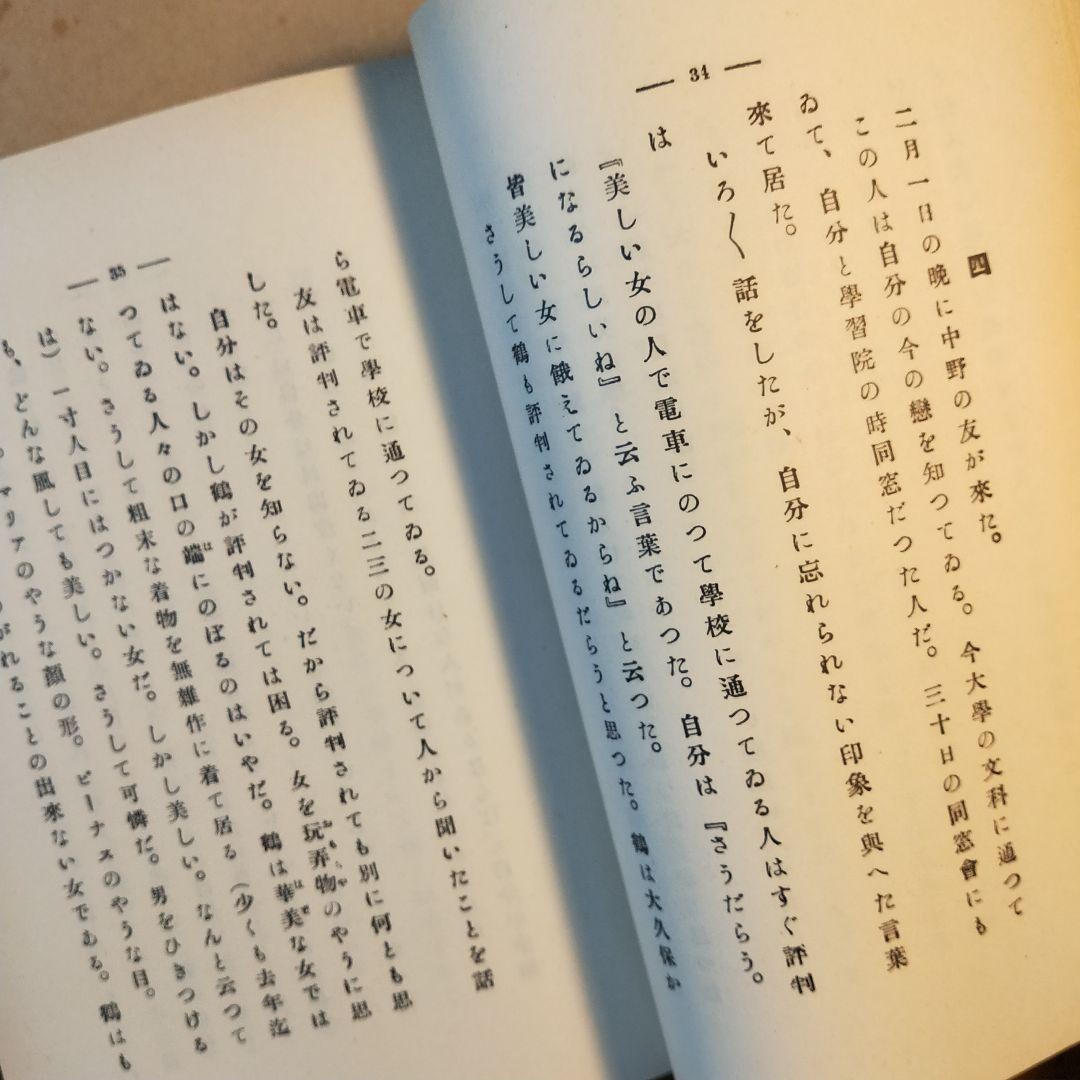 34
四
二月一日の晩に中野の友が來た。
この人は自分の今の戀を知つてゐる。今大學の文科に通つて
ゐて、自分と學習院の時同窓だつた人だ。三十日の同窓會にも
來て居た。
いろ〳〵話をしたが、自分に忘れられない印象を與へた言葉
は
『美しい女の人で電車にのつて學校に通つてゐる人はすぐ評判
になるらしいね』と云ふ言葉であつた。自分は『さうだらう。
皆美しい女に餓えてゐるからね』と云つた。
さうして鶴も評判されてゐるだらうと思つた。鶴は大久保か
35
ら電車で學校に通つてゐる。
友は評判されてゐる二三の女について人から聞いたことを話
した。
自分はその女を知らない。だから評判されても別に何とも思
はない。しかし鶴が評判されては困る。女を玩弄物のやうに思
つてゐる人々の口の端にのぼるのはいやだ。鶴は華美な女では
ない。さうして粗末な着物を無雜作に着て居る（少くも去年迄
は）一寸人目にはつかない女だ。しかし美しい。なんと云つて
も、どんな風しても美しい。さうして可憐だ。男をひきつける
マリアのやうな顔の形。ビーナスのやうな目。
れることの出來ない女である。鶴はも